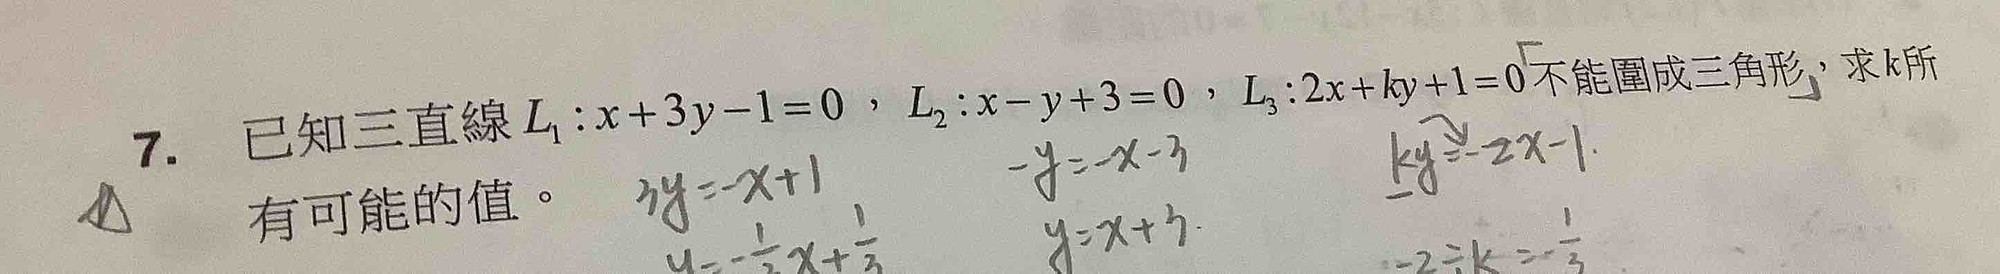 7. 已知三直線 L₁ : x + 3y − 1 = 0 , L₂ : x − y + 3 = 0 , L₃ : 2x + ky + 1 = 0「不能圍成三角形」, 求 k 所
有可能的值。
3y = -x + 1
-y = -x - 3
ky = -2x - 1.
y = -1/3 x + 1/3
y = x + 3.
-2 ÷ k = -1/3